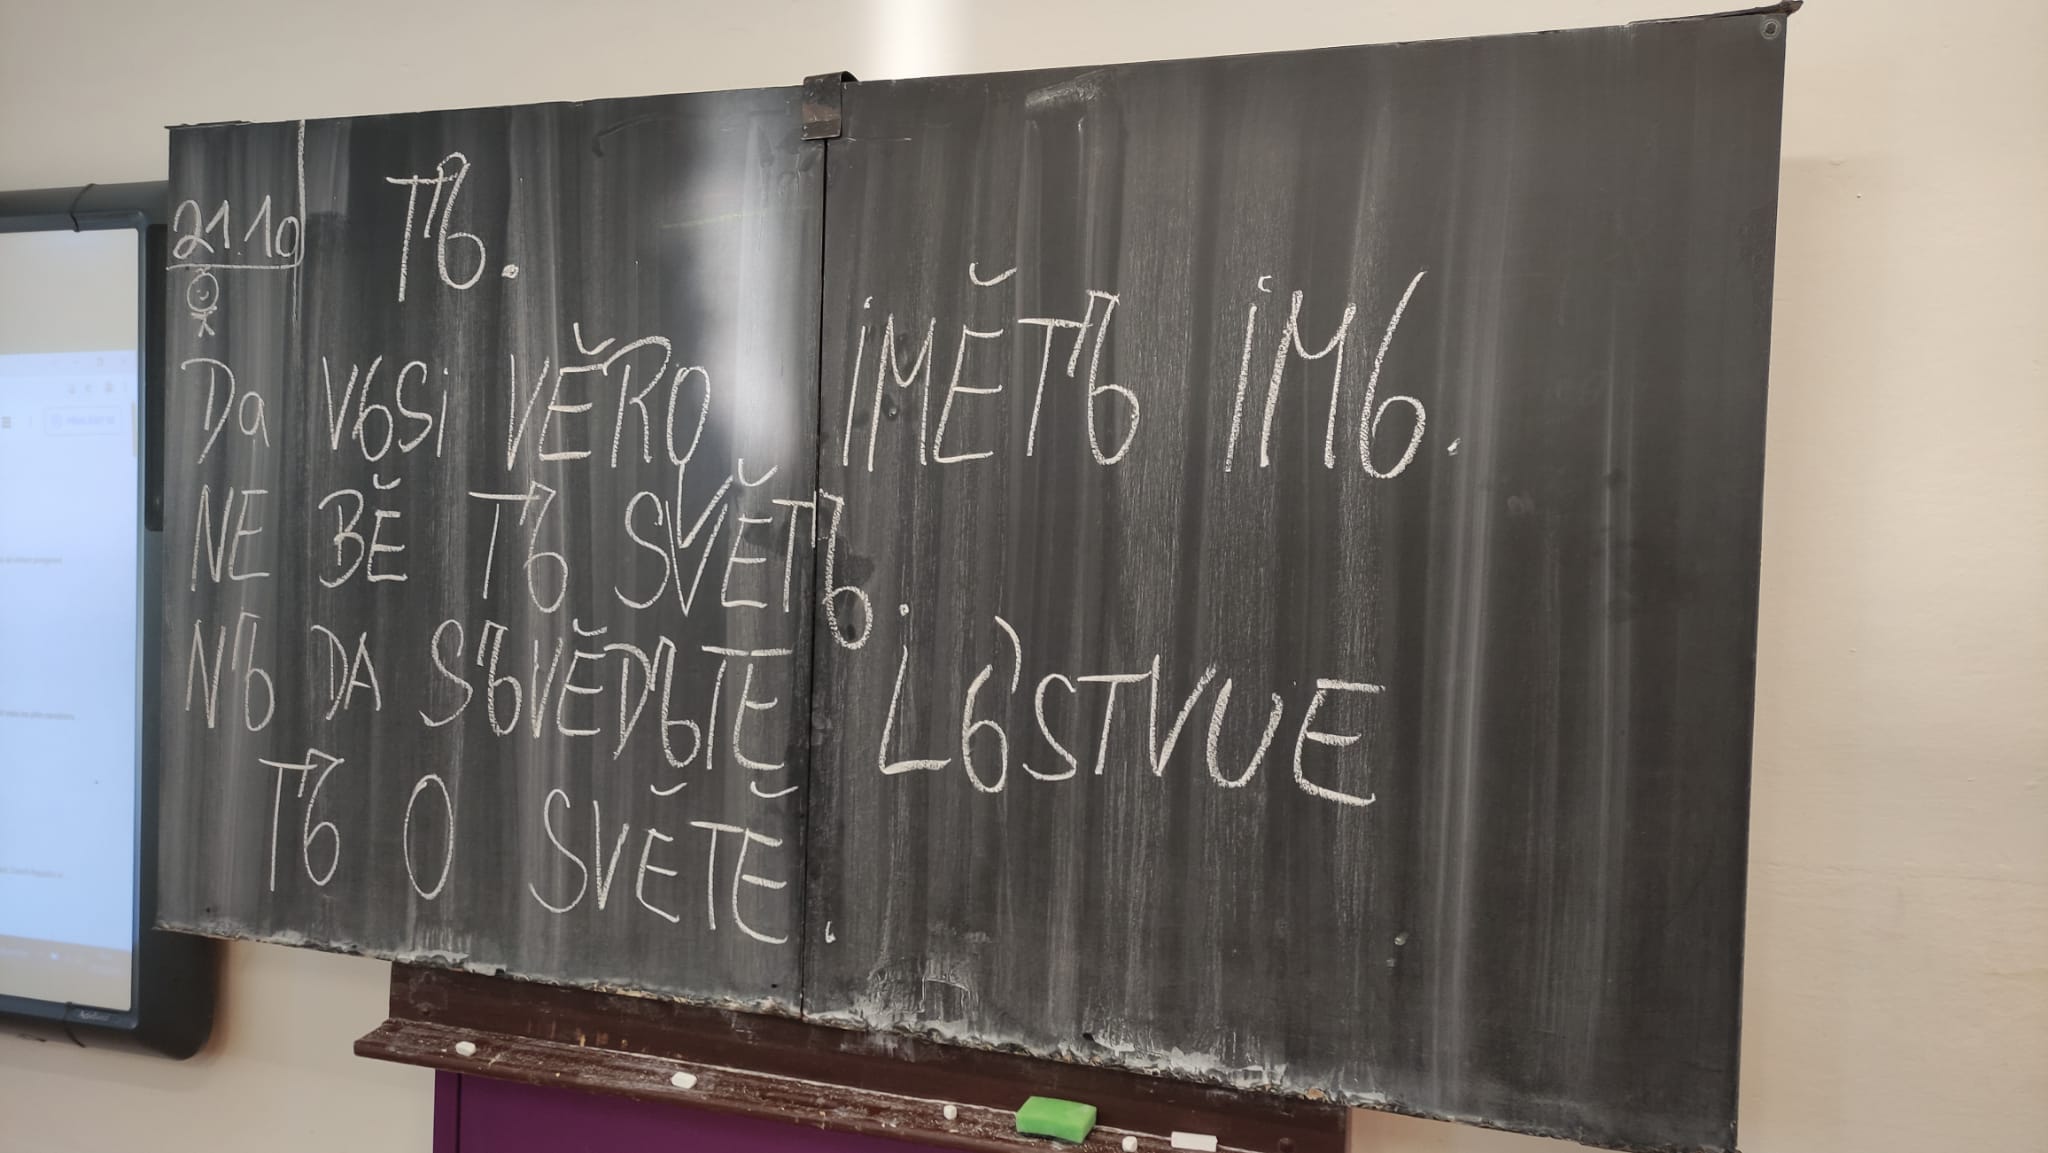 21.10
Tъ.
Da VьSi VĚRO IMĚTъ IMь.
NE BĚ Tъ SVĚTъ.
Nъ DA SъVĚDъTE LьSTVUE
Tъ O SVĚTĚ.